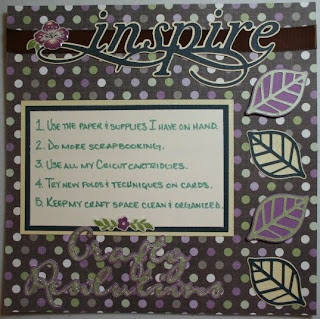 inspire
1. Use the paper & supplies I have on hand.
2. Do more scrapbooking.
3. Use all my Cricut cartridges.
4. Try new folds & techniques on cards.
5. Keep my craft space clean & organized.
Crafty
Resolutions